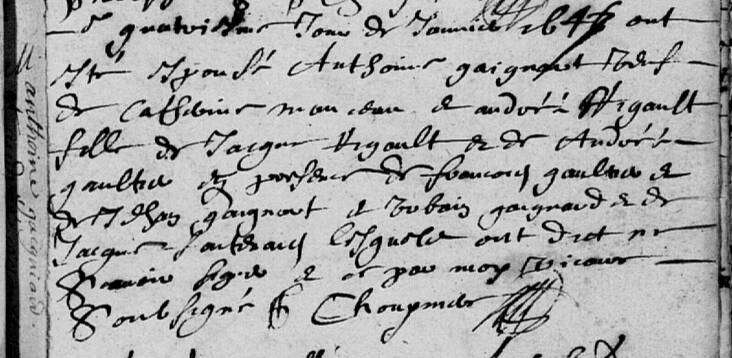 quatriesme Jour de Janvier 164 ont
Esté Espousé Anthoine gaignart veuf
de Catherine et andrée Rigault
fille de Jacque Rigault et de Andrée
gaultier En presence de francois gaultier et
de Jehan gaignart et Urbain gaignard et de
Jacque lesquels ont dict ne
scavoir signer et ce par moy vicaire
Soubsigné
anthoine gaignard